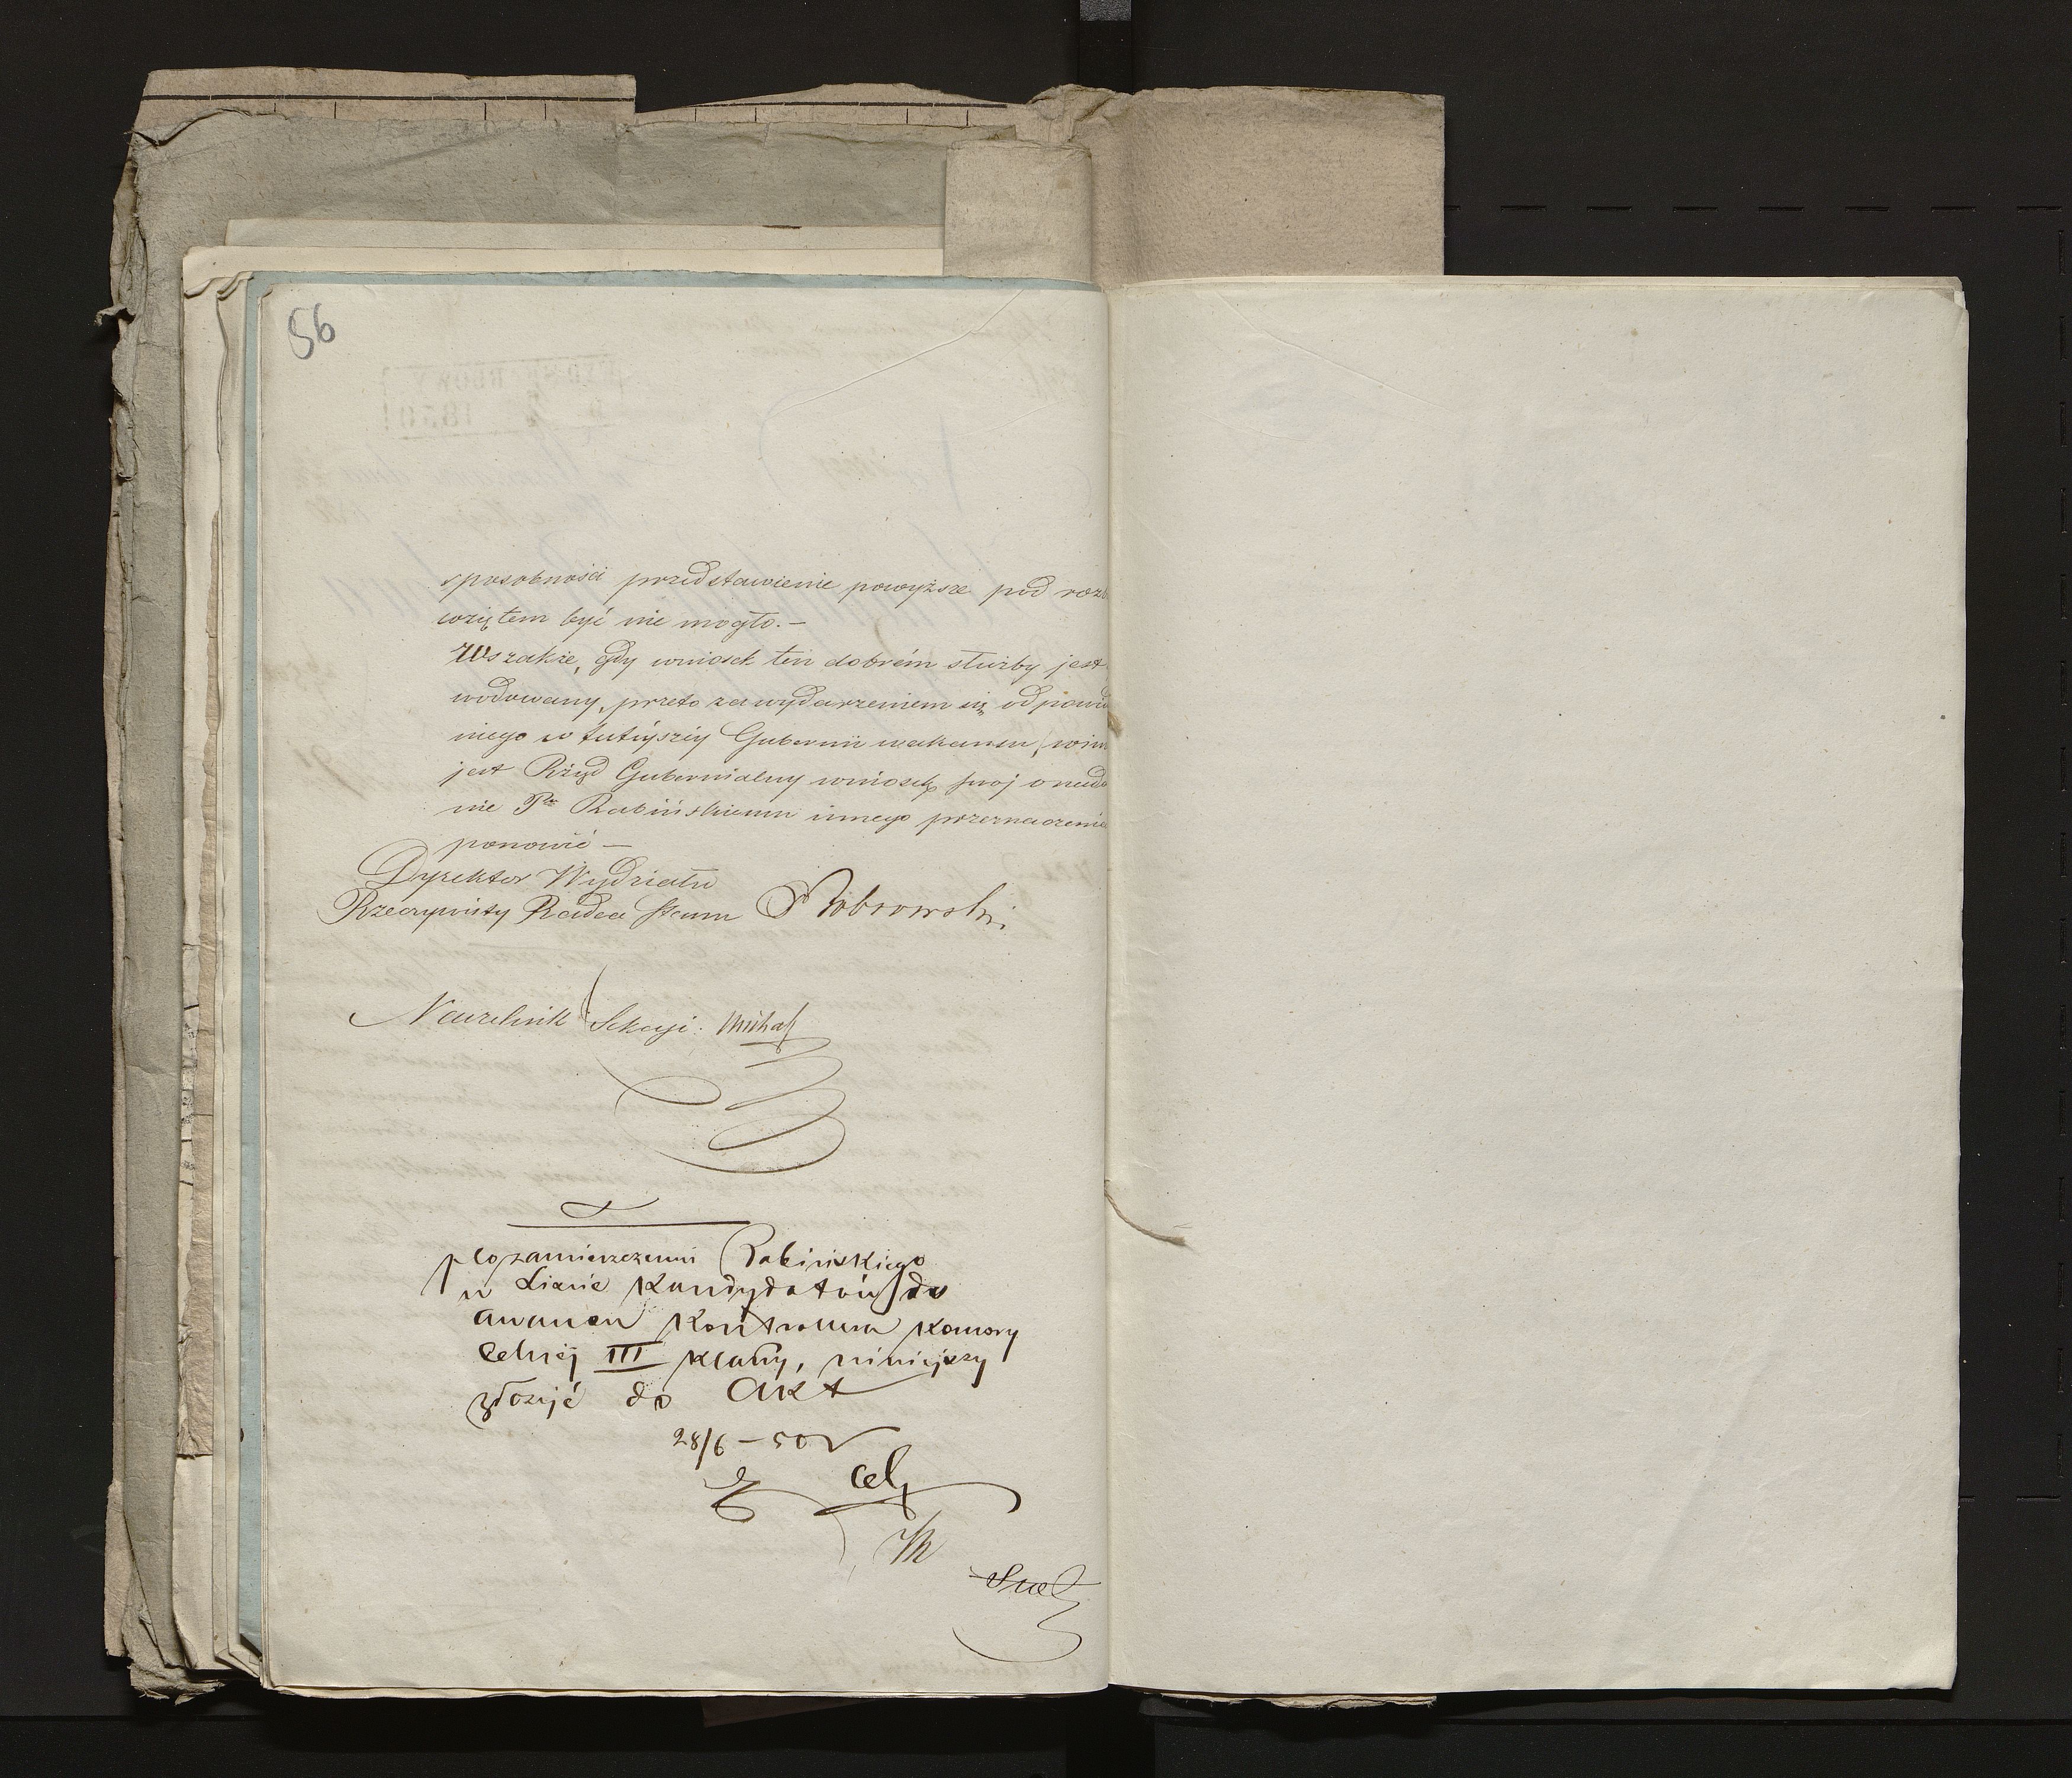 56
sposobności przedstawienie powyższe pod roz
wziętem być nie mogło. —
Wszakże, gdy wniosek ten dobrém służby jest
wodowany, przeto za wydarzeniem się odpowie
niego w tutéyszéy Gubernii wakansu,
jest Rząd Gubernialny wniosek swoj o nada
nie Pu Rabińskiemu innego przeznaczenia
ponowić —
Dyrektor Wydziału
Rzeczywisty Radca Stanu
Naczelnik Sekcyi
Po zamieszczeniu Rabińskiego
w Liście Kandydatów do
awansu Kontrolera Komory
Celnéj III klassy, niniejszy
złożyć do Akt
28/6 – 50